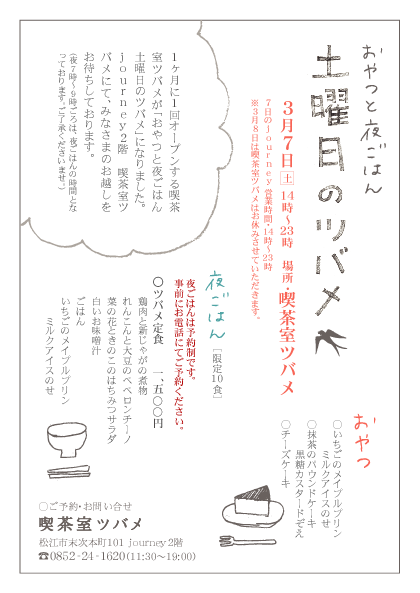 おやつと夜ごはん
土曜日のツバメ
3月7日 土 14時～23時 場所・喫茶室ツバメ
7日のjourney営業時間・14時～23時
※3月8日は喫茶室ツバメはお休みさせていただきます。
1ヶ月に1回オープンする喫茶
室ツバメが「おやつと夜ごはん
土曜日のツバメ」になりました。
journey2階 喫茶室ツ
バメにて、みなさまのお越しを
お待ちしております。
(夜7時～9時ごろは、夜ごはんの時間とな
っております。ご了承くださいませ。)
おやつ
○いちごのメイプルプリン
ミルクアイスのせ
○抹茶のパウンドケーキ
黒糖カスタードぞえ
○チーズケーキ
夜ごはん [限定10食]
夜ごはんは予約制です。
事前にお電話にてご予約ください。
○ツバメ定食 一、五〇〇円
鶏肉と新じゃがの煮物
れんこんと大豆のペペロンチーノ
菜の花ときのこのはちみつサラダ
白いお味噌汁
ごはん
いちごのメイプルプリン
ミルクアイスのせ
○ご予約・お問い合せ
喫茶室ツバメ
松江市末次本町101 journey2階
☎0852-24-1620(11:30～19:00)